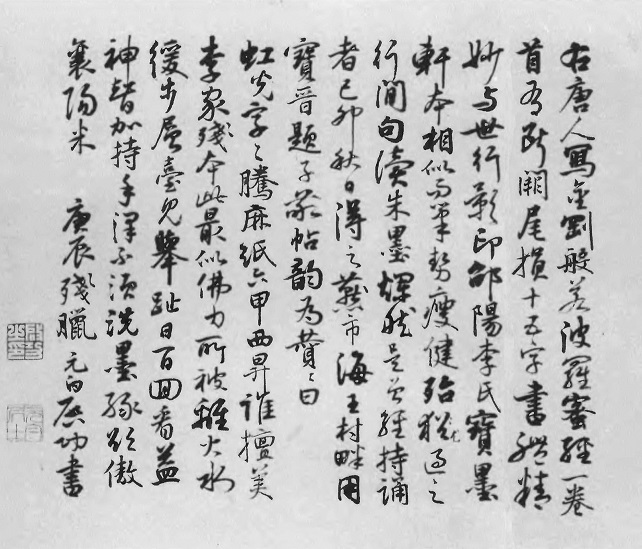 右唐人寫金剛般若波羅蜜經一卷
首有斷闕尾損十五字書體精
妙与世行影印郃陽李氏寶墨
軒本相似而筆勢瘦健殆猶過之
行間句讀朱墨爛然是曾經持誦
者己卯秋日得之燕市海王村畔因用
寶晉題子敬帖韻為贊贊曰
虹光字字騰麻紙六甲西昇誰擅美
李家殘本此最似佛力所被離火水
緩步層臺見舉趾日百回看益
神智加持手澤不須洗墨緣欲傲
襄陽米 庚辰殘臘元白啟功書